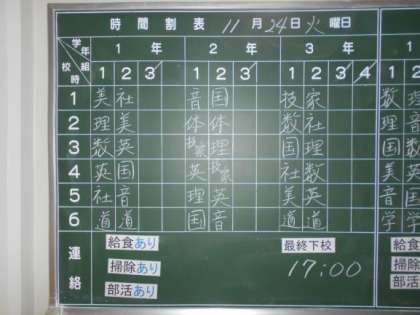 時間割表 11月24日火曜日
学年 1年 2年 3年
校時 組 1 2 3 1 2 3 1 2 3 4 1 2
1 美 社 音 国 技 家 数 理
2 理 美 体 体 数 社 理
3 数 英 技家 理 国 理 国 数
4 英 国 英 技家 社 数 英
5 社 音 理 英 美 英 音 国
6 道 道 国 音 道 道 学 学
連絡 給食あり 最終下校 給食
掃除あり 17:00 掃除
部活あり 部活